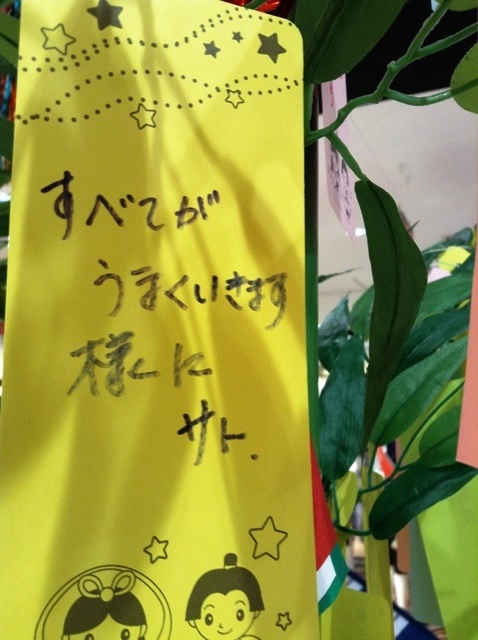 すべてが
うまくいきます
様に
サト.